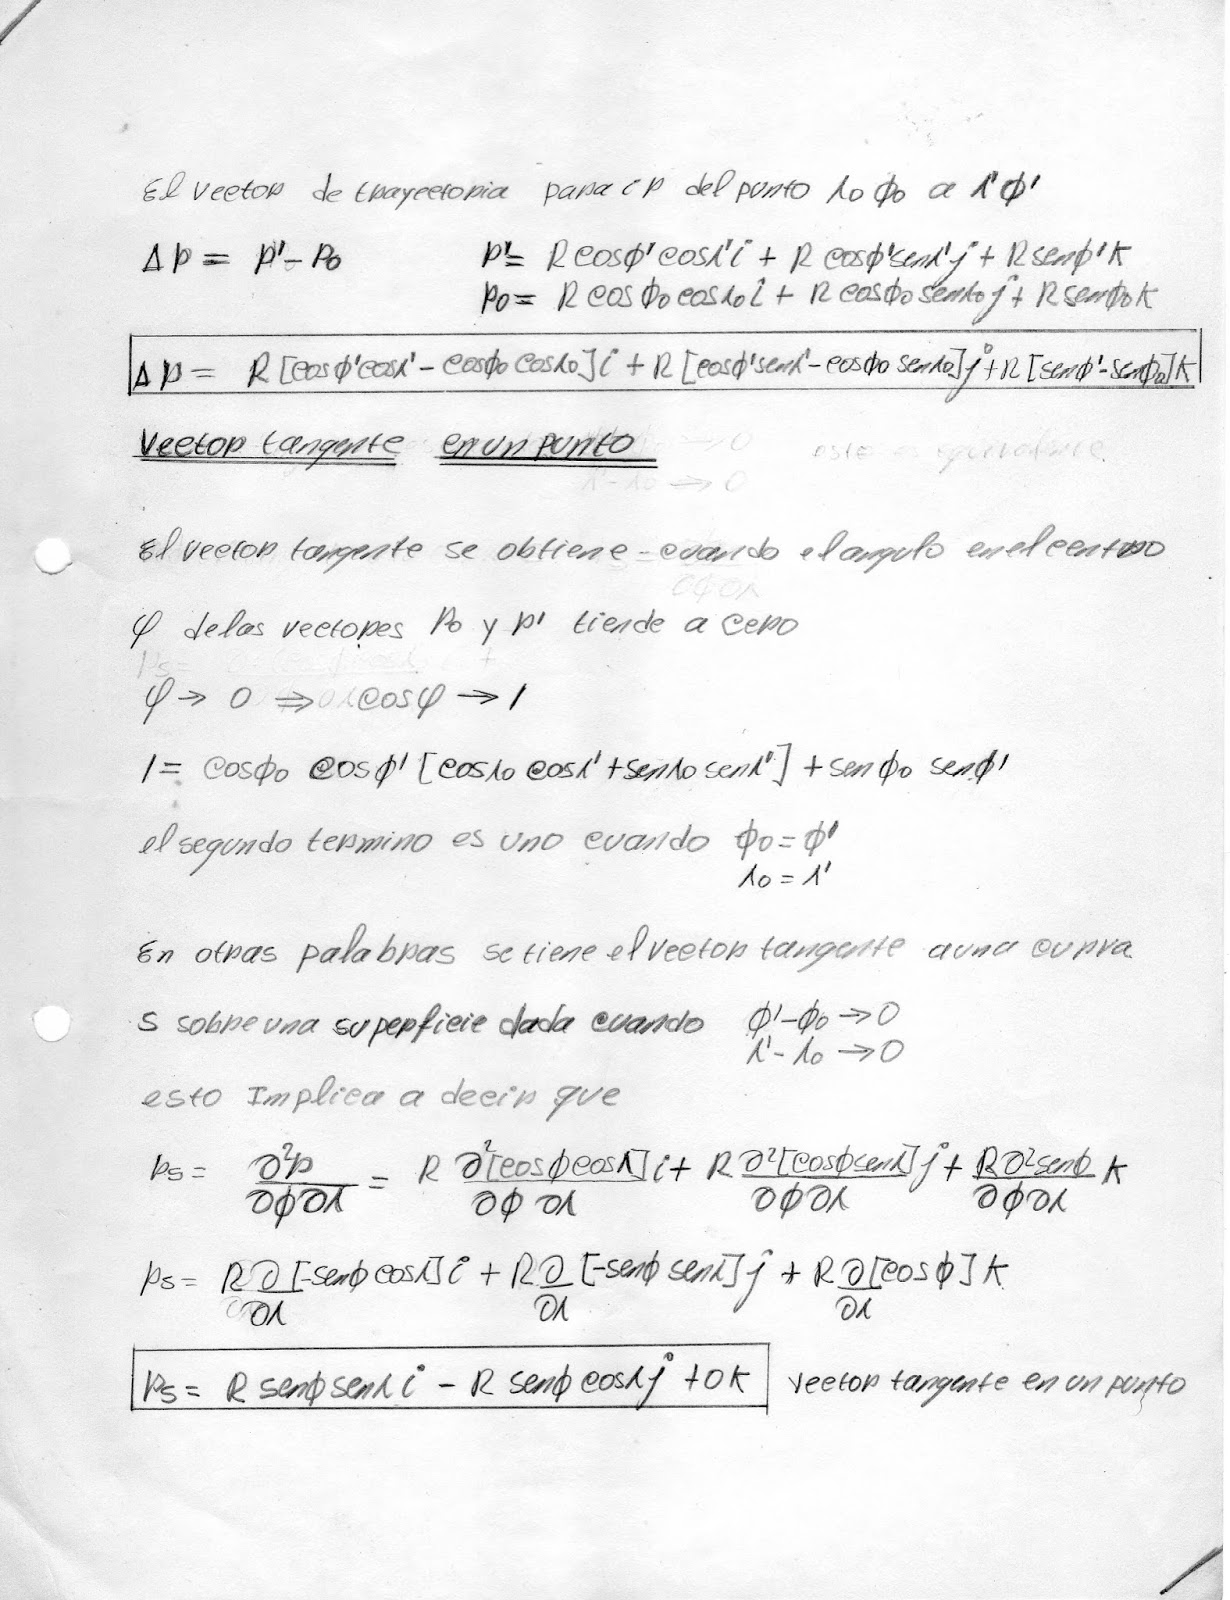 El vector de trayectoria para ir del punto λ0 ϕ0 a λ'ϕ'
Δp = p' - p0    p' = R cosϕ' cosλ' i + R cosϕ' senλ' j + R senϕ' k
p0 = R cosϕ0 cosλ0 i + R cosϕ0 senλ0 j + R senϕ0 k
Δp = R [cosϕ' cosλ' - cosϕ0 cosλ0] i + R [cosϕ' senλ' - cosϕ0 senλ0] j + R [senϕ' - senϕ0] k
Vector tangente en un punto
El vector tangente se obtiene cuando el angulo en el centro
φ de las vectores p0 y p' tiende a cero
φ → 0 ⇒ cosφ → 1
1 = cosϕ0 cosϕ' [cosλ0 cosλ' + senλ0 senλ'] + senϕ0 senϕ'
el segundo termino es uno cuando ϕ0 = ϕ'
λ0 = λ'
En otras palabras se tiene el vector tangente a una curva
S sobre una superficie dada cuando ϕ' - ϕ0 → 0
λ' - λ0 → 0
esto Implica a decir que
ps = ∂²p/∂ϕ∂λ = R ∂²[cosϕ cosλ]/∂ϕ∂λ i + R ∂²[cosϕ senλ]/∂ϕ∂λ j + R∂² senϕ/∂ϕ∂λ k
ps = R∂/∂λ [-senϕ cosλ] i + R∂/∂λ [-senϕ senλ] j + R∂/∂λ [cosϕ] k
ps = R senϕ senλ i - R senϕ cosλ j + 0 k    vector tangente en un punto